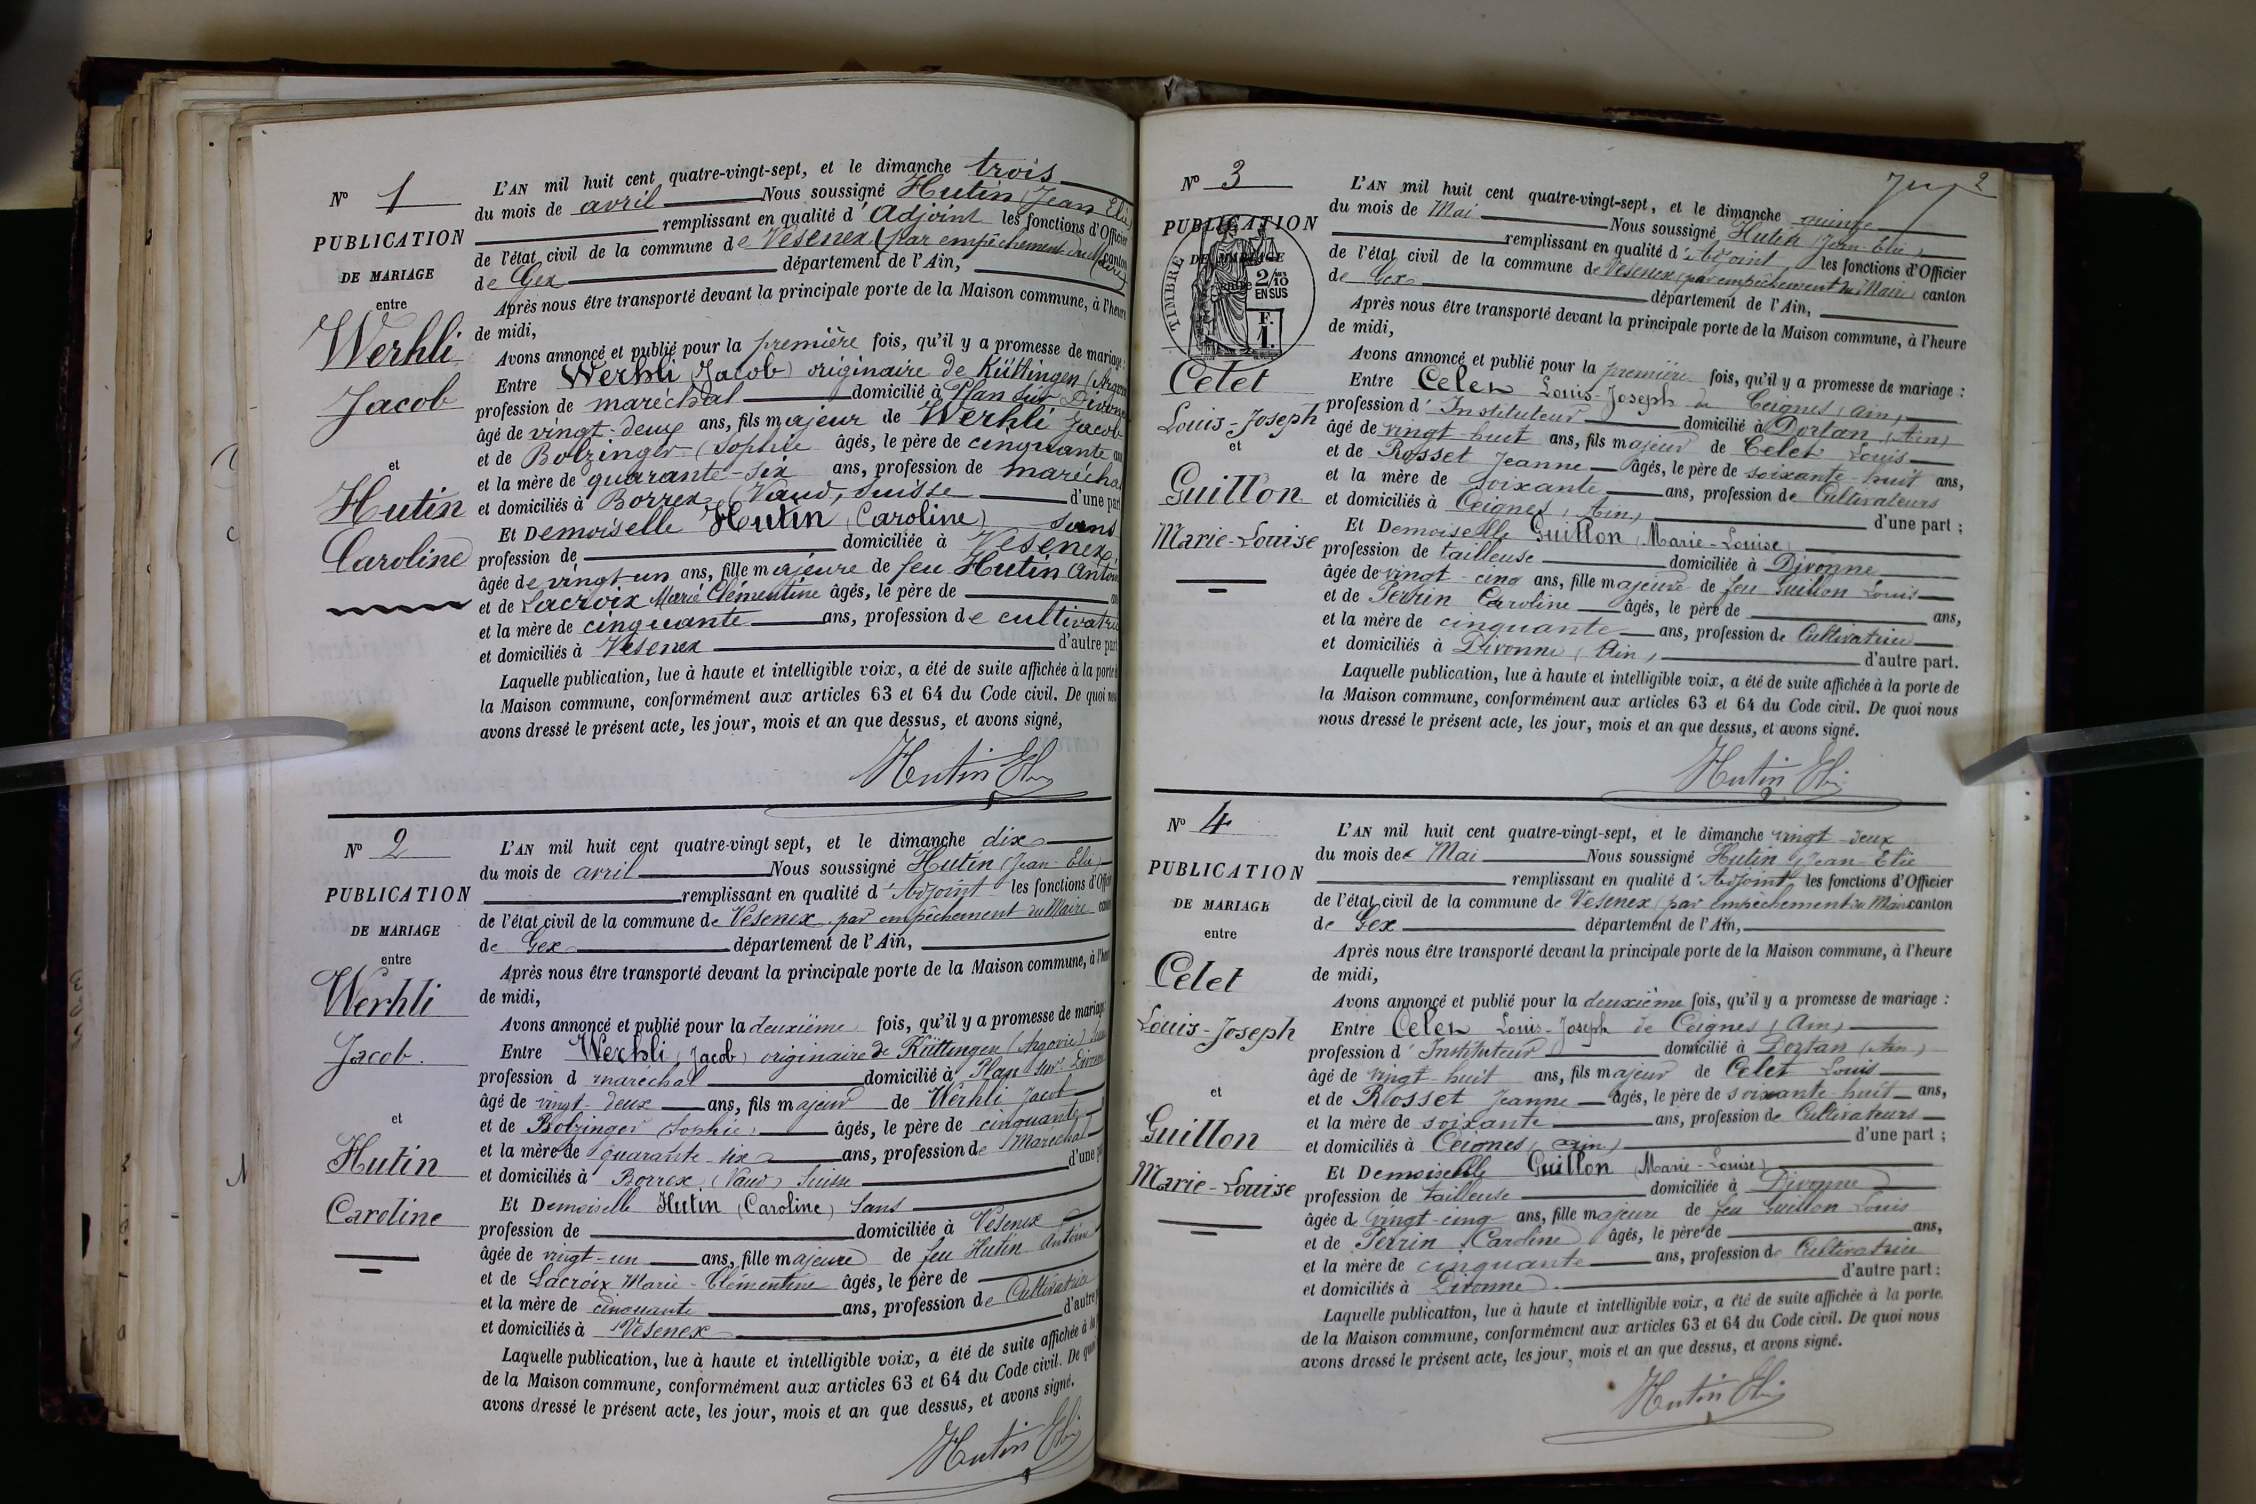 Nº 1
PUBLICATION
DE MARIAGE
entre
Werhli
Jacob
et
Hutin
Caroline
L'AN mil huit cent quatre-vingt-sept, et le dimanche trois
du mois de avril Nous soussigné Hutin (Jean Elie)
remplissant en qualité d'Adjoint les fonctions d'Officier
de l'état civil de la commune de Vésenex (par empêchement du Maire) canton
de Gex département de l'Ain,
Après nous être transporté devant la principale porte de la Maison commune, à l'heure
de midi,
Avons annoncé et publié pour la première fois, qu'il y a promesse de mariage :
Entre Werhli (Jacob) originaire de Küttingen (Argovie
profession de maréchal domicilié à Plan sur Divonne
âgé de vingt-deux ans, fils majeur de Werhli Jacob
et de Bolzinger (Sophie âgés, le père de cinquante ans
et la mère de quarante-six ans, profession de maréchal
et domiciliés à Borrex (Vaud, Suisse d'une part
Et Demoiselle Hutin (Caroline) sans
profession de domiciliée à Vésenex
âgée de vingt-un ans, fille majeure de feu Hutin Antoine
et de Lacroix Marie Clémentine âgés, le père de ans
et la mère de cinquante ans, profession de cultivatrice
et domiciliés à Vésenex d'autre part
Laquelle publication, lue à haute et intelligible voix, a été de suite affichée à la porte de
la Maison commune, conformément aux articles 63 et 64 du Code civil. De quoi nous
avons dressé le présent acte, les jour, mois et an que dessus, et avons signé,
Hutin Elie
Nº 2
PUBLICATION
DE MARIAGE
entre
Werhli
Jacob.
et
Hutin
Caroline
L'AN mil huit cent quatre-vingt sept, et le dimanche dix
du mois de avril Nous soussigné Hutin (Jean-Elie)
remplissant en qualité d'Adjoint les fonctions d'Officier
de l'état civil de la commune de Vésenex par empêchement du Maire canton
de Gex département de l'Ain,
Après nous être transporté devant la principale porte de la Maison commune, à l'heure
de midi,
Avons annoncé et publié pour la deuxième fois, qu'il y a promesse de mariage :
Entre Werhli (Jacob) originaire de Küttingen (Argovie)
profession d maréchal domicilié à Plan sur Divonne
âgé de vingt-deux ans, fils majeur de Werhli Jacob
et de Bolzinger (Sophie) âgés, le père de cinquante
et la mère de quarante-six ans, profession de Maréchal
et domiciliés à Borrex (Vaud) Suisse d'une part
Et Demoiselle Hutin (Caroline) Sans
profession de domiciliée à Vésenex
âgée de vingt-un ans, fille majeure de feu Hutin Antoine
et de Lacroix Marie-Clémentine âgés, le père de
et la mère de cinquante ans, profession de Cultivatrice
et domiciliés à Vésenex d'autre
Laquelle publication, lue à haute et intelligible voix, a été de suite affichée à la
de la Maison commune, conformément aux articles 63 et 64 du Code civil. De quoi
avons dressé le présent acte, les jour, mois et an que dessus, et avons signé.
Hutin Elie
2
Nº 3
PUBLICATION
DE MARIAGE
entre
TIMBRE
2/10
EN SUS
F.
1.
Celet
Louis-Joseph
et
Guillon
Marie-Louise
L'AN mil huit cent quatre-vingt-sept, et le dimanche quinze
du mois de Mai Nous soussigné Hutin (Jean-Elie)
remplissant en qualité d'Adjoint les fonctions d'Officier
de l'état civil de la commune de Vésenex (par empêchement du Maire) canton
de Gex département de l'Ain,
Après nous être transporté devant la principale porte de la Maison commune, à l'heure
de midi,
Avons annoncé et publié pour la première fois, qu'il y a promesse de mariage :
Entre Celet Louis-Joseph de Ceignes (Ain)
profession d'Instituteur domicilié à Dortan (Ain)
âgé de vingt-huit ans, fils majeur de Celet Louis
et de Rosset Jeanne âgés, le père de soixante-huit ans,
et la mère de soixante ans, profession de Cultivateurs
et domiciliés à Ceignes (Ain) d'une part ;
Et Demoiselle Guillon (Marie-Louise)
profession de tailleuse domiciliée à Divonne
âgée de vingt-cinq ans, fille majeure de feu Guillon Louis
et de Perrin Caroline âgés, le père de ans,
et la mère de cinquante ans, profession de Cultivatrice
et domiciliés à Divonne (Ain) d'autre part.
Laquelle publication, lue à haute et intelligible voix, a été de suite affichée à la porte de
la Maison commune, conformément aux articles 63 et 64 du Code civil. De quoi nous
nous dressé le présent acte, les jour, mois et an que dessus, et avons signé.
Hutin Elie
Nº 4
PUBLICATION
DE MARIAGE
entre
Celet
Louis-Joseph
et
Guillon
Marie-Louise
L'AN mil huit cent quatre-vingt-sept, et le dimanche vingt-deux
du mois de Mai Nous soussigné Hutin Jean-Elie
remplissant en qualité d'Adjoint les fonctions d'Officier
de l'état civil de la commune de Vésenex (par empêchement du Maire canton
de Gex département de l'Ain,
Après nous être transporté devant la principale porte de la Maison commune, à l'heure
de midi,
Avons annoncé et publié pour la deuxième fois, qu'il y a promesse de mariage :
Entre Celet Louis-Joseph de Ceignes (Ain)
profession d'Instituteur domicilié à Dortan (Ain)
âgé de vingt-huit ans, fils majeur de Celet Louis
et de Rosset Jeanne âgés, le père de soixante-huit ans,
et la mère de soixante ans, profession de Cultivateurs
et domiciliés à Ceignes (Ain) d'une part ;
Et Demoiselle Guillon (Marie-Louise)
profession de tailleuse domiciliée à Divonne
âgée d vingt-cinq ans, fille majeure de feu Guillon Louis
et de Perrin (Caroline) âgés, le père de ans,
et la mère de cinquante ans, profession de Cultivatrice
et domiciliés à Divonne d'autre part :
Laquelle publication, lue à haute et intelligible voix, a été de suite affichée à la porte
de la Maison commune, conformément aux articles 63 et 64 du Code civil. De quoi nous
avons dressé le présent acte, les jour, mois et an que dessus, et avons signé.
Hutin Elie